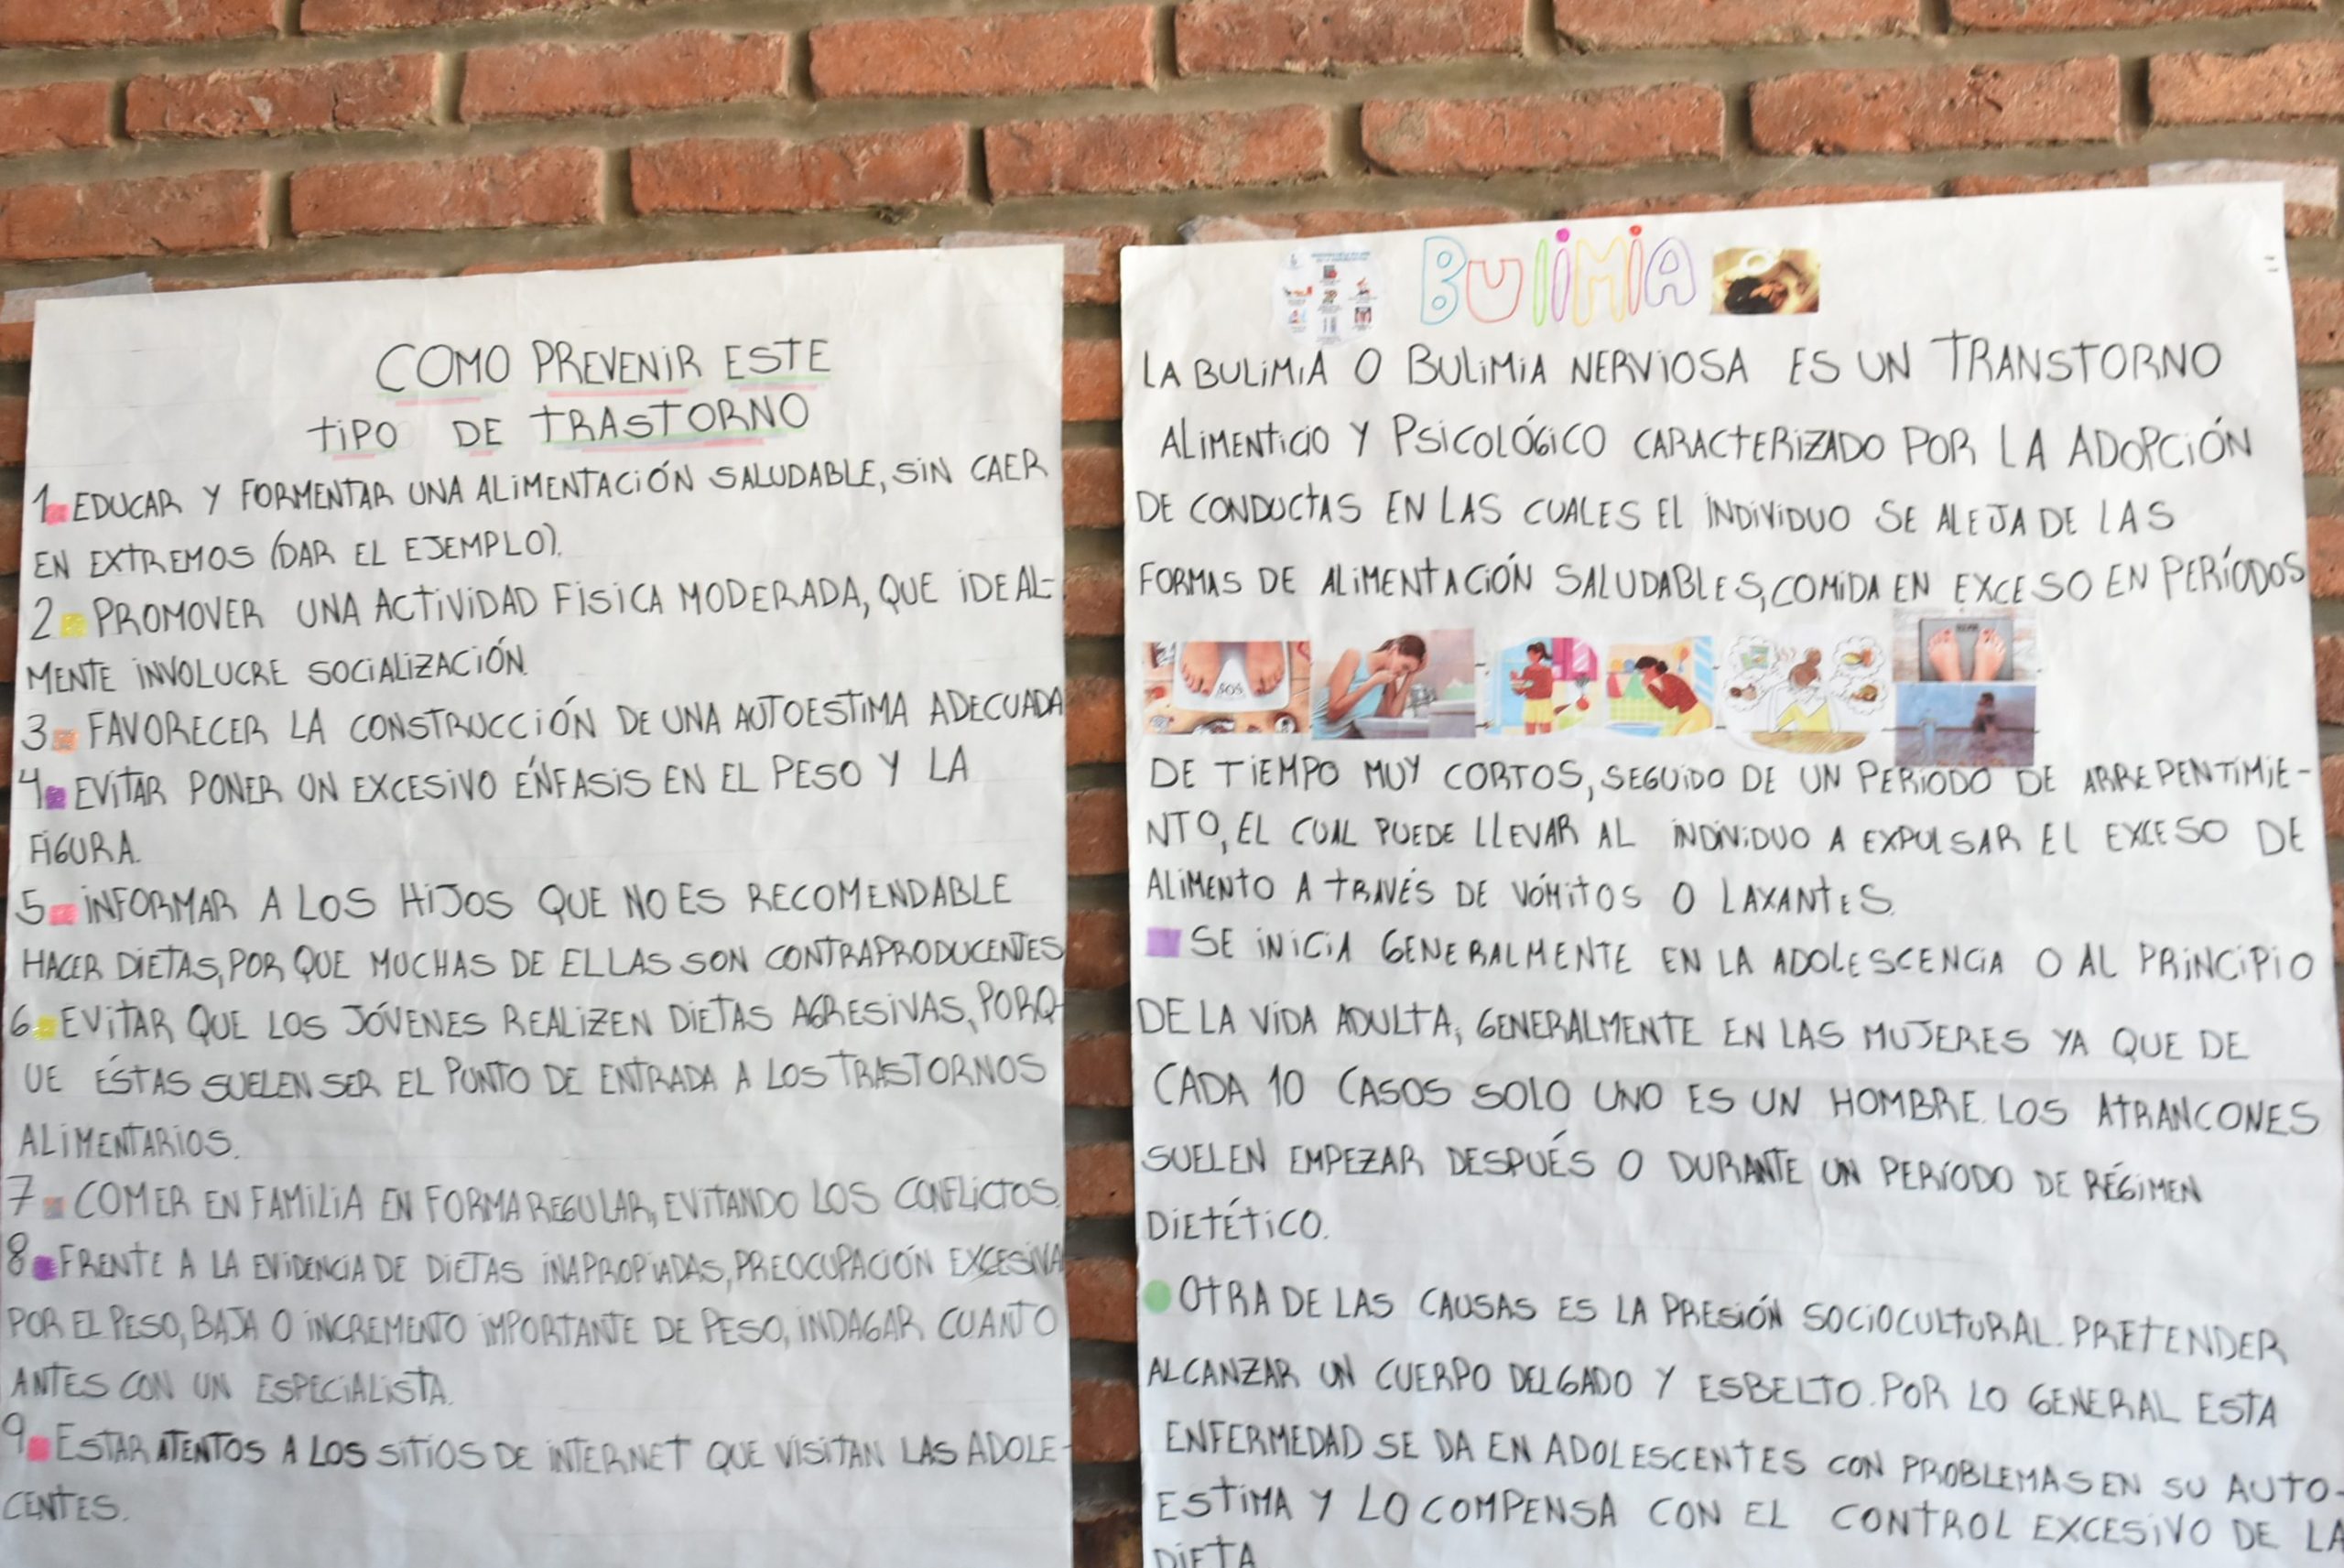 COMO PREVENIR ESTE
TIPO DE TRASTORNO
1 EDUCAR Y FORMENTAR UNA ALIMENTACIÓN SALUDABLE, SIN CAER
EN EXTREMOS (DAR EL EJEMPLO).
2 PROMOVER UNA ACTIVIDAD FÍSICA MODERADA, QUE IDEAL-
MENTE INVOLUCRE SOCIALIZACIÓN.
3 FAVORECER LA CONSTRUCCIÓN DE UNA AUTOESTIMA ADECUADA
4 EVITAR PONER UN EXCESIVO ÉNFASIS EN EL PESO Y LA
FIGURA.
5 INFORMAR A LOS HIJOS QUE NO ES RECOMENDABLE
HACER DIETAS, POR QUE MUCHAS DE ELLAS SON CONTRAPRODUCENTES
6 EVITAR QUE LOS JÓVENES REALIZEN DIETAS AGRESIVAS, PORQ-
UE ÉSTAS SUELEN SER EL PUNTO DE ENTRADA A LOS TRASTORNOS
ALIMENTARIOS.
7 COMER EN FAMILIA EN FORMA REGULAR, EVITANDO LOS CONFLICTOS.
8 FRENTE A LA EVIDENCIA DE DIETAS INAPROPIADAS, PREOCUPACIÓN EXCESIVA
POR EL PESO, BAJA O INCREMENTO IMPORTANTE DE PESO, INDAGAR CUANTO
ANTES CON UN ESPECIALISTA.
9 ESTAR ATENTOS A LOS SITIOS DE INTERNET QUE VISITAN LAS ADOLE-
CENTES.
BULIMIA
LA BULIMIA O BULIMIA NERVIOSA ES UN TRANSTORNO
ALIMENTICIO Y PSICOLÓGICO CARACTERIZADO POR LA ADOPCIÓN
DE CONDUCTAS EN LAS CUALES EL INDIVIDUO SE ALEJA DE LAS
FORMAS DE ALIMENTACIÓN SALUDABLES, COMIDA EN EXCESO EN PERÍODOS
SOS
DE TIEMPO MUY CORTOS, SEGUIDO DE UN PERIODO DE ARREPENTIMIE-
NTO, EL CUAL PUEDE LLEVAR AL INDIVIDUO A EXPULSAR EL EXCESO DE
ALIMENTO A TRAVÉS DE VÓMITOS O LAXANTES.
SE INICIA GENERALMENTE EN LA ADOLESCENCIA O AL PRINCIPIO
DE LA VIDA ADULTA, GENERALMENTE EN LAS MUJERES YA QUE DE
CADA 10 CASOS SOLO UNO ES UN HOMBRE. LOS ATRANCONES
SUELEN EMPEZAR DESPUÉS O DURANTE UN PERÍODO DE RÉGIMEN
DIETÉTICO.
OTRA DE LAS CAUSAS ES LA PRESIÓN SOCIOCULTURAL. PRETENDER
ALCANZAR UN CUERPO DELGADO Y ESBELTO. POR LO GENERAL ESTA
ENFERMEDAD SE DA EN ADOLESCENTES CON PROBLEMAS EN SU AUTO-
ESTIMA Y LO COMPENSA CON EL CONTROL EXCESIVO DE LA
DIETA